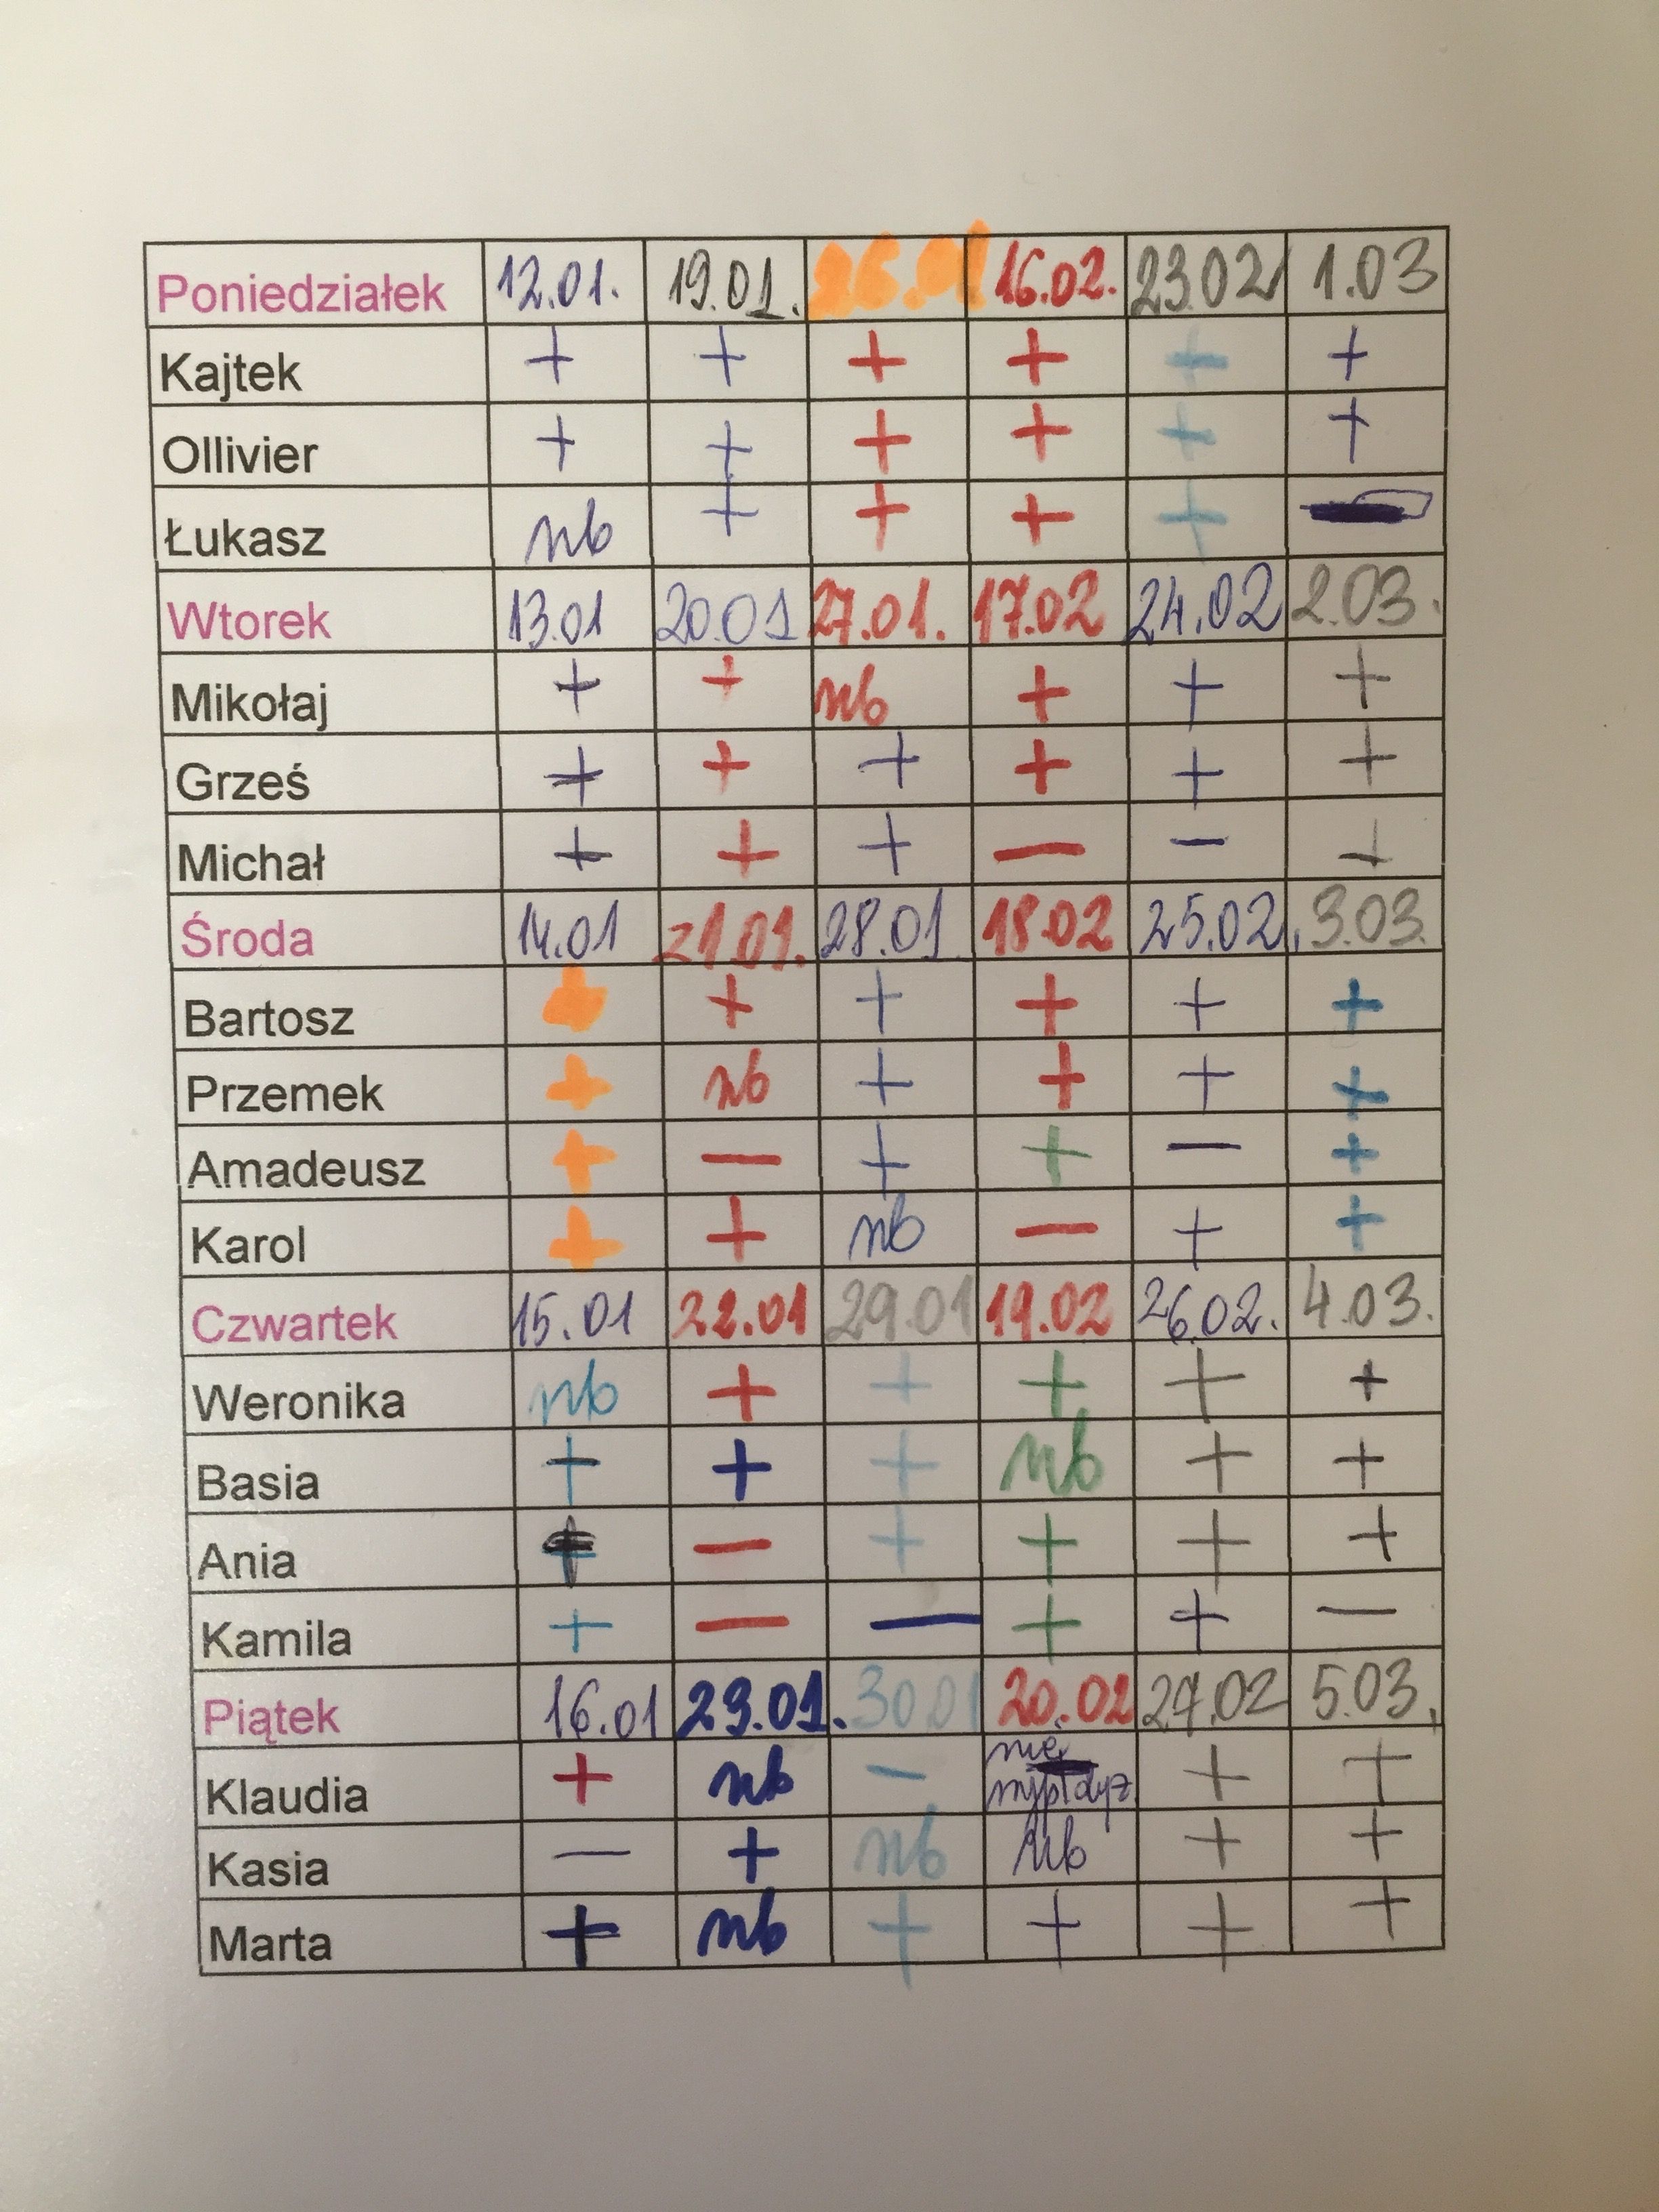 Poniedziałek 12.01. 19.01. 26.01 16.02. 23.02 1.03
Kajtek + + + + + +
Ollivier + + + + + +
Łukasz nb + + + +
Wtorek 13.01 20.01 27.01. 17.02 24.02 2.03.
Mikołaj + + nb + + +
Grześ + + + + + +
Michał + + + — — +
Środa 14.01 21.01. 28.01. 18.02 25.02. 3.03.
Bartosz + + + + + +
Przemek + nb + + + +
Amadeusz + — + + — +
Karol + + nb — + +
Czwartek 15.01 22.01 29.01 19.02 26.02. 4.03.
Weronika nb + + + + +
Basia + + + nb + +
Ania + — + + + +
Kamila + — — + + —
Piątek 16.01 23.01. 30.01 20.02 27.02 5.03.
Klaudia + nb — nie + +
Kasia — + nb nb + +
Marta + nb + + + +